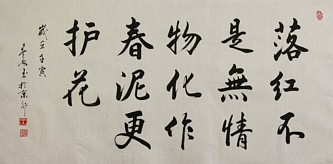 落红不
是無情
物化作
春泥更
护花
歲在壬寅